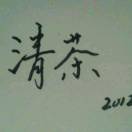 清茶
2012